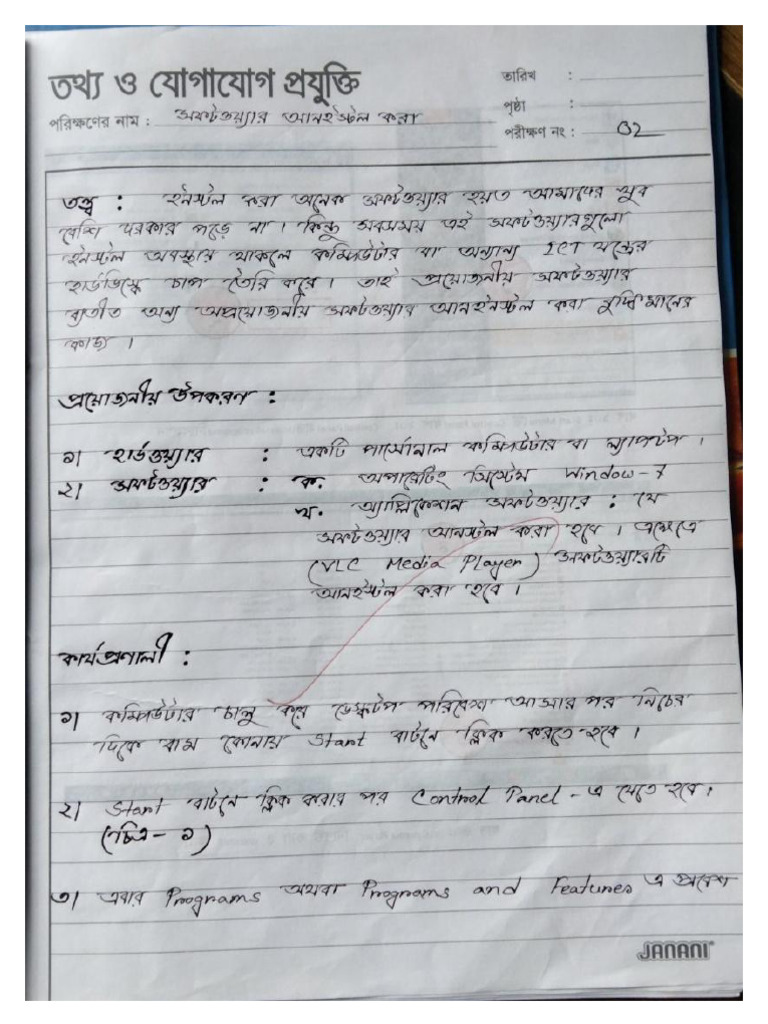 তথ্য ও যোগাযোগ প্রযুক্তি
তারিখ :
পৃষ্ঠা :
পরিক্ষণের নাম : সফটওয়্যার আনইন্সটল করা
পরীক্ষণ নং : 02
তত্ত্ব : ইনস্টল করা অনেক সফটওয়্যার হয়ত আমাদের খুব
বেশি দরকার পড়ে না। কিন্তু সবসময় এই সফটওয়্যারগুলো
ইনস্টল অবস্থায় থাকলে কম্পিউটার বা অন্যান্য ICT যন্ত্রের
হার্ডডিস্কে চাপ তৈরি করে। তাই প্রয়োজনীয় সফটওয়্যার
ব্যতীত অন্য অপ্রয়োজনীয় সফটওয়্যার আনইনস্টল করা বুদ্ধিমানের
কাজ।
প্রয়োজনীয় উপকরণ :
১। হার্ডওয়্যার : একটি পার্সোনাল কম্পিউটার বা ল্যাপটপ।
২। সফটওয়্যার : ক. অপারেটিং সিস্টেম Window-7
খ. অ্যাপ্লিকেশন সফটওয়্যার : যে
সফটওয়্যার আনস্টল করা হবে। এক্ষেত্রে
(VLC Media Player) সফটওয়্যারটি
আনইস্টল করা হবে।
কার্যপ্রণালী :
১। কম্পিউটার চালু করে ডেস্কটপ পরিবেশ আসার পর নিচের
দিকে বাম কোনায় Start বাটনে ক্লিক করতে হবে।
২। Start বাটনে ক্লিক করার পর Control Panel - এ যেতে হবে।
(চিত্র - ১)
৩। এবার Programs অথবা Programs and Features এ প্রবেশ
JANANI